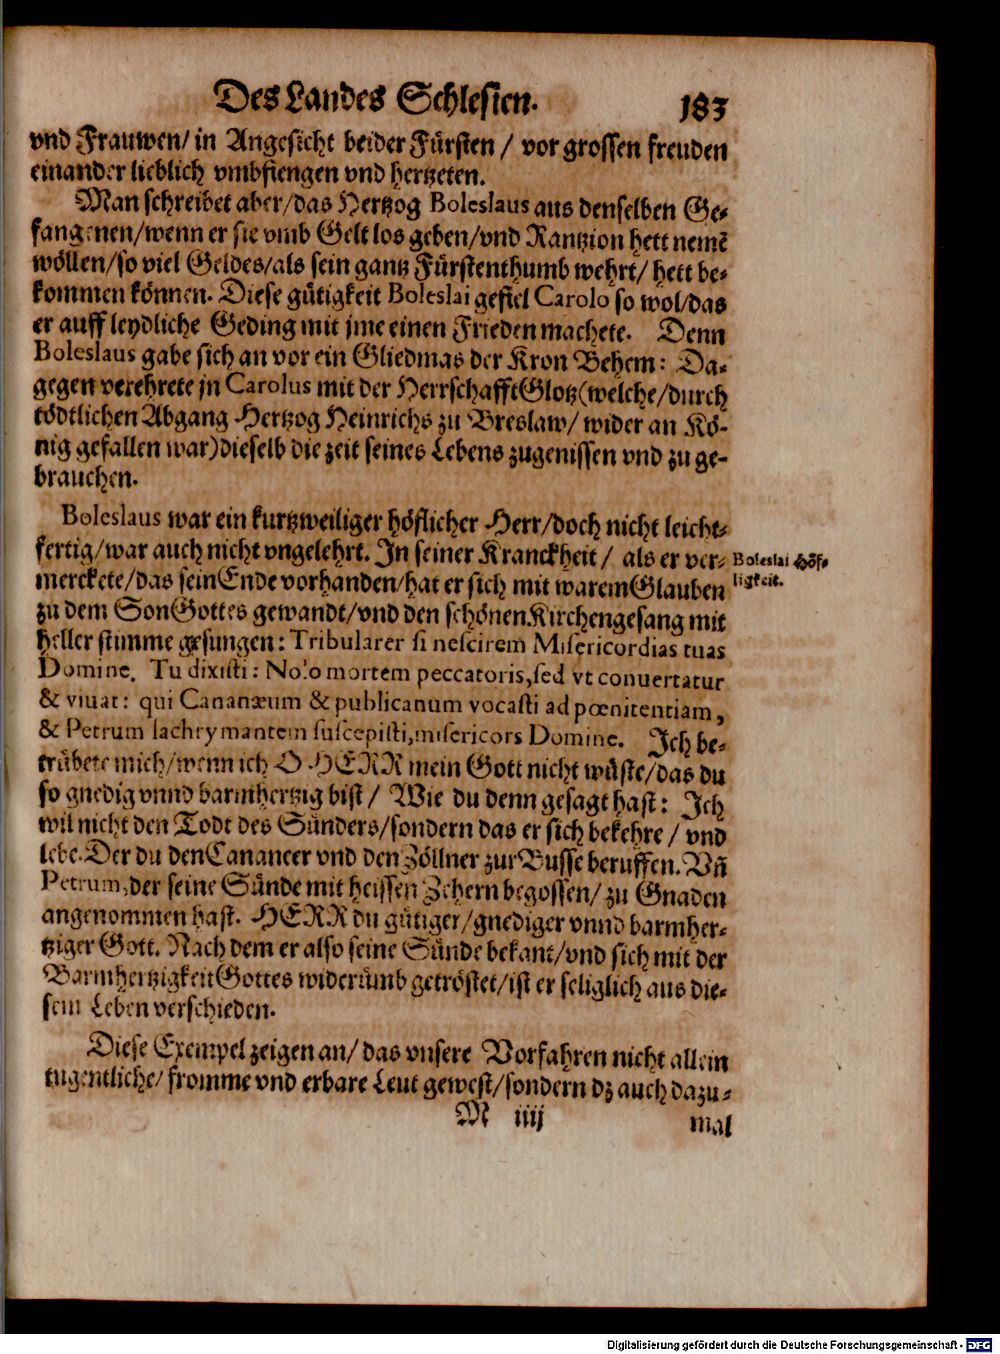 Des Landes Schlesien. 183
vnd Frauwen/ in Angesicht beider Fürsten / vor grossen freuden
einander lieblich vmbfiengen vnd hertzeten.
Man schreibet aber/das Hertzog Boleslaus aus denselben Ge-
fangenen/wenn er sie vmb Gelt los geben/vnd Rantzion hett nemē
wöllen/so viel Geldes/als sein gantz Fürstenthumb wehrt/ hett be-
kommen können. Diese gütigkeit Boleslai gefiel Carolo so wol/das
er auff leydliche Geding mit jme einen Frieden machete. Denn
Boleslaus gabe sich an vor ein Gliedmas der Kron Behem: Da-
gegen verehrete jn Carolus mit der Herrschafft Glotz(welche/durch
tödtlichen Abgang Hertzog Heinrichs zu Breslaw/ wider an Kö-
nig gefallen war)dieselb die zeit seines Lebens zugenissen vnd zu ge-
brauchen.
Boleslaus war ein kurtzweiliger höflicher Herr/doch nicht leicht-
fertig/war auch nicht vngelehrt. In seiner Kranckheit / als er ver-
merckete/das sein Ende vorhanden/hat er sich mit warem Glauben
zu dem Son Gottes gewandt/vnd den schönen Kirchengesang mit
heller stimme gesungen: Tribularer si nescirem Misericordias tuas
Domine. Tu dixisti: Nolo mortem peccatoris, sed vt conuertatur
& viuat: qui Cananæum & publicanum vocasti ad pœnitentiam,
& Petrum lachrymantem suscepisti, misericors Domine. Ich be-
trübete mich/wenn ich O HERR mein Gott nicht wüste/das du
so gnedig vnnd barmhertzig bist / Wie du denn gesagt hast: Ich
wil nicht den Todt des Sünders/sondern das er sich bekehre / vnd
lebe. Der du den Cananeer vnd den Zöllner zur Busse beruffen. Vñ
Petrum, der seine Sünde mit heissen Zehern begossen/ zu Gnaden
angenommen hast. HERR du gütiger/gnediger vnnd barmher-
tziger Gott. Nach dem er also seine Sünde bekant/vnd sich mit der
Barmhertzigkeit Gottes widerümb getröstet/ist er seliglich aus die-
sem Leben verschieden.
Boleslai Höf-
ligkeit.
Diese Exempel zeigen an/ das vnsere Vorfahren nicht allein
tugentliche/ fromme vnd erbare Leut gewest/sondern dz auch dazu-
M iiij mal
Digitalisierung gefördert durch die Deutsche Forschungsgemeinschaft - DFG